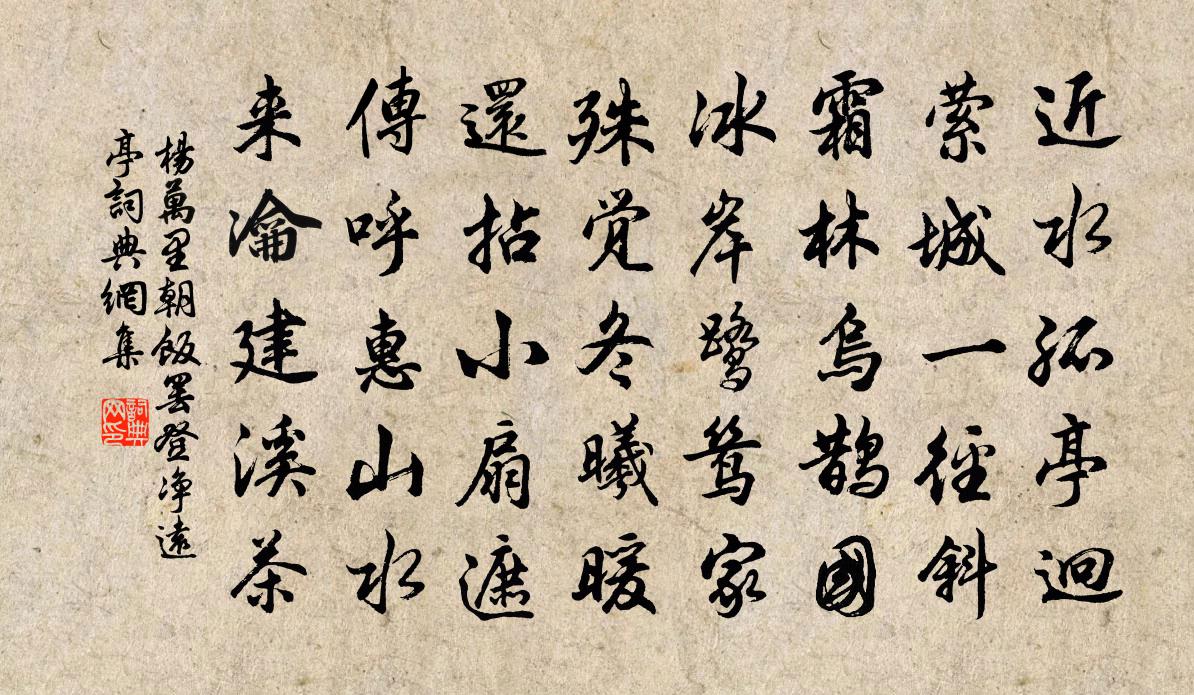 近水孤亭迥
萦城一徑斜
霜林烏鵲國
冰岸鹭鸶家
殊觉冬曦暖
還拈小扇遮
傳呼惠山水
来瀹建溪茶
楊萬里朝飯罢登净遠
亭詞典網集
詞典
网印